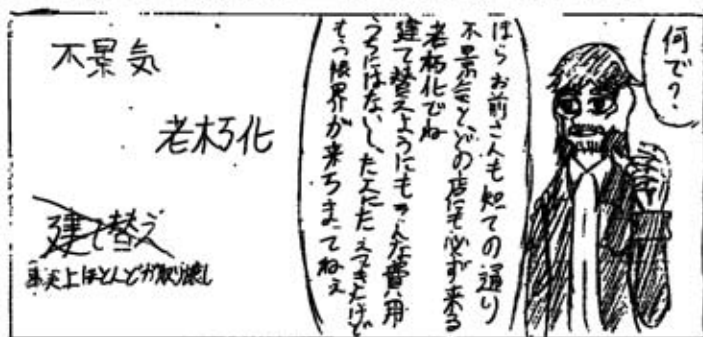 何で?
ほら お前さんも知ての通り
不景気と、どの店にも必ず来る
老朽化でね
建て替えようにもそんな費用
うちにはないし、たえにたえてきたけど
もう限界が来ちまってねえ
不景気
老朽化
建て替え
事実上ほとんどが取り壊し